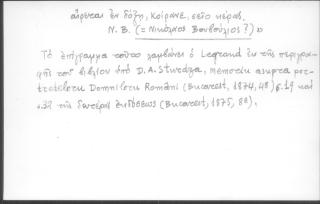 αἴρεται ἐν δόξῃ, Κοίρανέ, σεῖο κέρας.
N. B. (= Νικόλαος Βουβούλιος ?) »
Τὸ ἐπίγραμμα τοῦτο λαμβάνει ὁ Legrand ἐκ τῆς περιγρα-
φῆς τοῦ βιβλίου ὑπὸ D. A. Sturdza, memoriu asupra por-
treteloru Domniloru Români (Bucarest, 1874, 4º) σ. 19 καὶ
σ. 21 τῆς δευτέρας ἐκδόσεως (Bucarest, 1875, 8º).